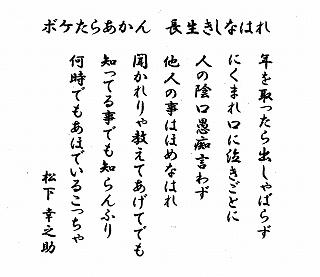 ボケたらあかん 長生きしなはれ
年を取ったら出しゃばらず
にくまれ口に泣きごとに
人の陰口愚痴言わず
他人の事はほめなはれ
聞かれりゃ教えてあげてでも
知ってる事でも知らんふり
何時でもあほでいるこっちゃ
松下 幸之助